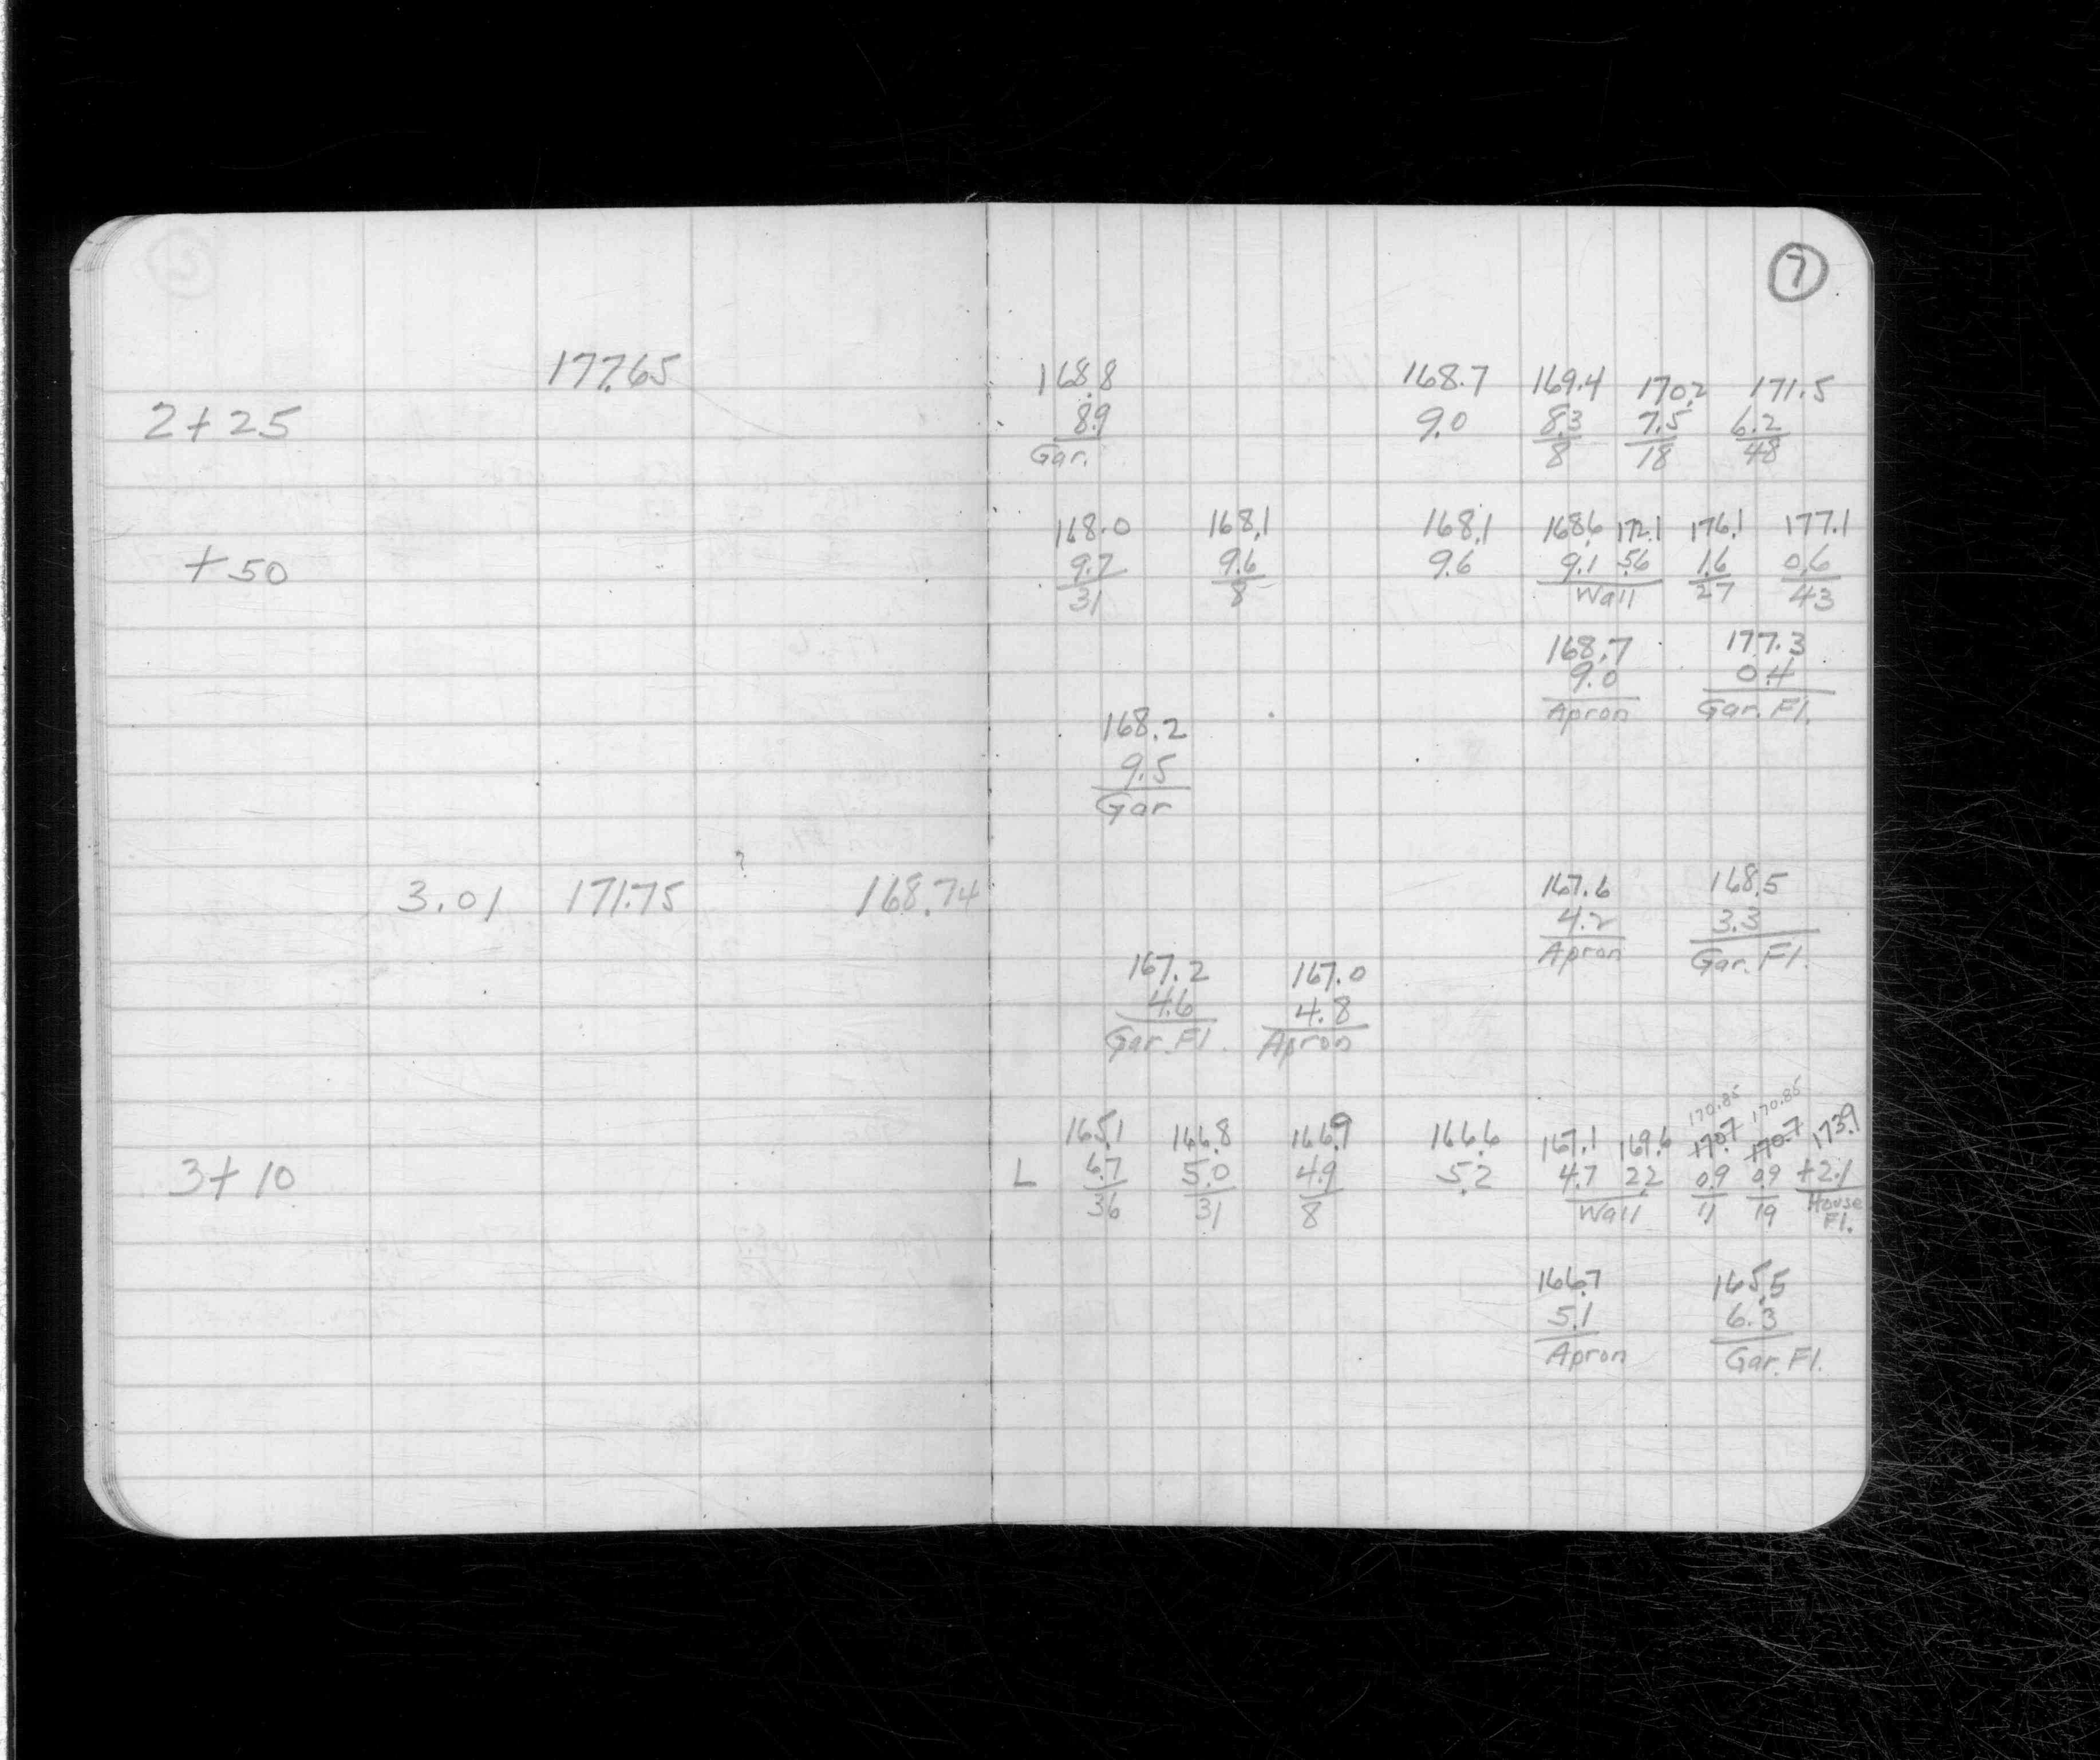 7
177.65
168.8 168.7 169.4 170.2 171.5
2+25 8.9 9.0 8.3 7.5 6.2
Gar. 8 18 48
168.0 168.1 168.1 168.6 172.1 176.1 177.1
+50 9.7 9.6 9.6 9.1 5.6 1.6 0.6
31 8 Wall 27 43
168.7 177.3
9.0 0.4
Apron Gar. Fl.
168.2
9.5
Gar
?
3.01 171.75 168.74
167.6 168.5
4.2 3.3
Apron Gar. Fl.
167.2 167.0
4.6 4.8
Gar. Fl. Apron
170.85 170.85
165.1 166.8 166.9 166.6 167.1 169.6 170.7 170.7 173.9
3+10 L 6.7 5.0 4.9 5.2 4.7 2.2 0.9 0.9 +2.1
36 31 8 Wall 11 19 House
Fl.
166.7 165.5
5.1 6.3
Apron Gar. Fl.